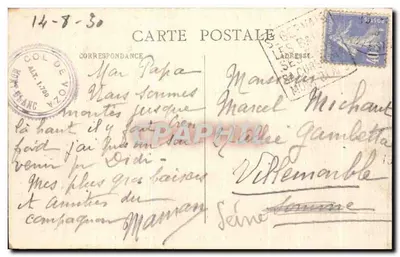 14-8-30
CARTE POSTALE
CORRESPONDANCE
ADRESSE
COL DE VOZA
ALT. 1.700
BLANC
Mon Papa
Nous sommes
montés jusque
là haut il y fait bien
froid j'ai mis un sou
venir pr Didi
Mes plus gros baisers
et amitiés du
compagnon
Maman
Monsieur
Marcel Michaut
Gambetta
Villemomble
Somme
Seine
PAPHR